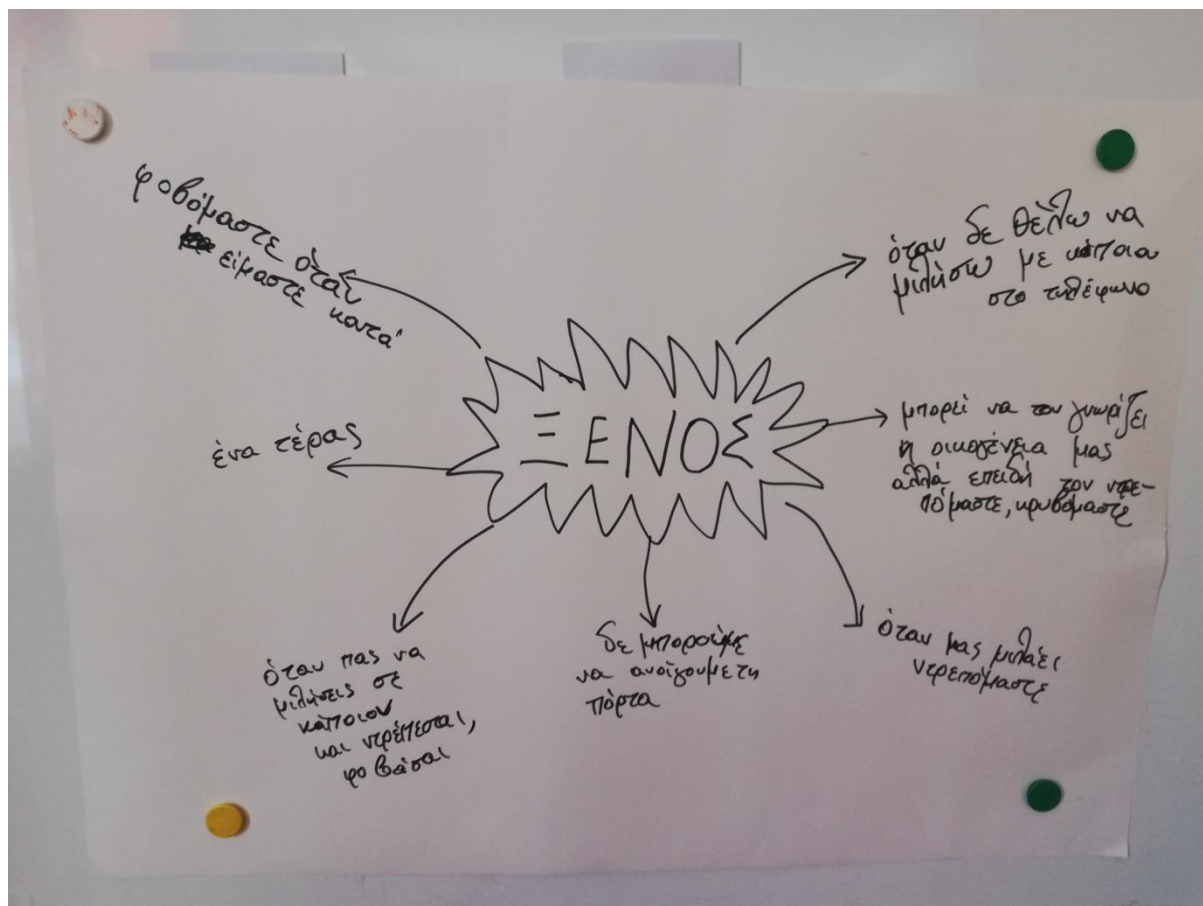 φοβόμαστε όταν
είμαστε κοντά
όταν δε θέλω να
μιλήσω με κάποιο
στο τηλέφωνο
ΞΕΝΟΣ
μπορεί να τον γνωρίζει
η οικογένεια μας
αλλά επειδή τον ντρε-
πόμαστε, κρυβόμαστε
ένα τέρας
όταν πας να
μιλήσεις σε
κάποιον
και ντρέπεσαι,
φοβάσαι
δε μπορούμε
να ανοίγουμε τη
πόρτα
όταν μας μιλάει
ντρεπόμαστε